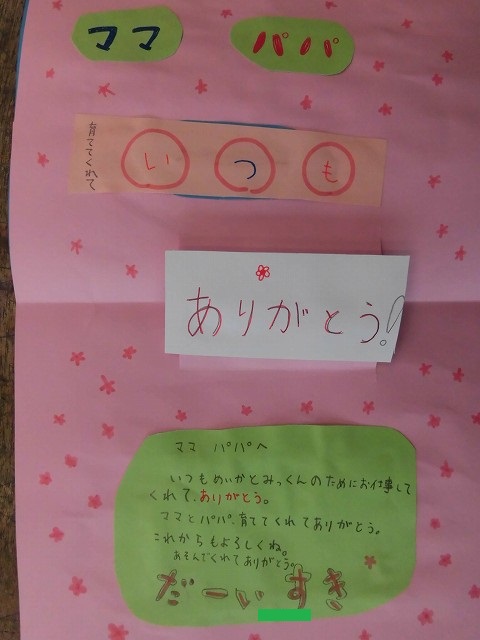 ママ パパ
いつも
育ててくれて
ありがとう!
ママ パパへ
いつもめいかとみっくんのためにお仕事して
くれて、ありがとう。
ママとパパ、育ててくれてありがとう。
これからもよろしくね。
あそんでくれてありがとう。
だーいすき